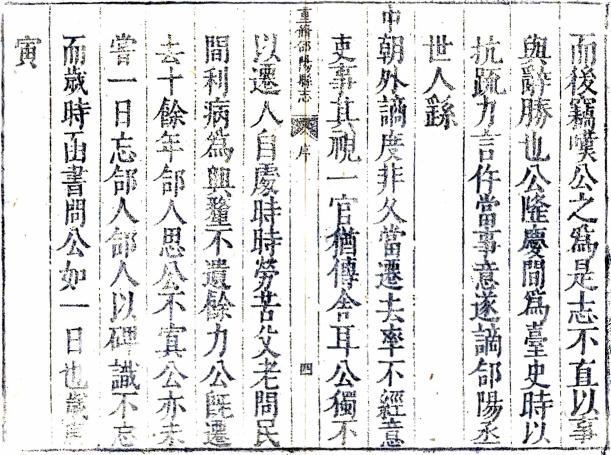 而後竊嘆公之爲是志不直以事
與辭勝也公隆慶間爲臺史時以
抗疏力言仵當事意遂謫郃陽丞
世人繇
中朝外謫度非久當遷去率不經意
吏事其視一官猶傳舍耳公獨不
重脩郃陽縣志
序
四
以遷人自處時時勞苦父老問民
間利病爲興釐不遺餘力公旣遷
去十餘年郃人思公不寘公亦未
嘗一日忘郃人郃人以碑識不忘
而歲時函書問公如一日也歲
寅